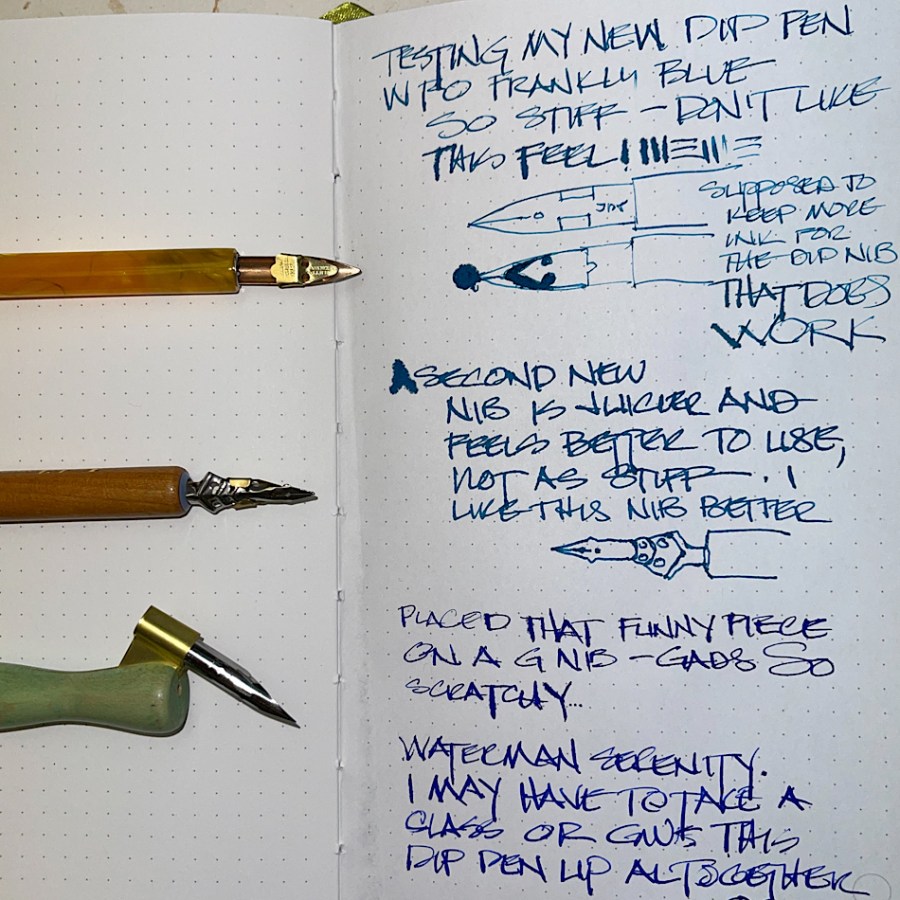 TESTING MY NEW DIP PEN
W PO FRANKLY BLUE
SO STIFF - DON'T LIKE
THIS FEEL!
SUPPOSED TO
KEEP MORE
INK FOR
THE DIP NIB
THAT DOES
WORK
A SECOND NEW
NIB IS JUICIER AND
FEELS BETTER TO USE,
NOT AS STIFF. I
LIKE THIS NIB BETTER
PLACED THAT FUNNY PIECE
ON A G NIB - GADS SO
SCRATCHY...
WATERMAN SERENITY.
I MAY HAVE TO TAKE A
CLASS OR GIVE THIS
DIP PEN UP ALTOGETHER